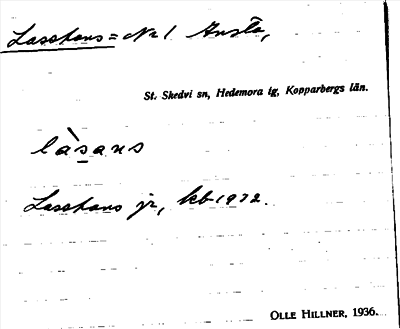 Lasshans = No 1 Ansta,
St. Skedvi sn, Hedemora tg, Kopparbergs län.
làsans
Lasshans jr, kb 1972.
OLLE HILLNER, 1936.